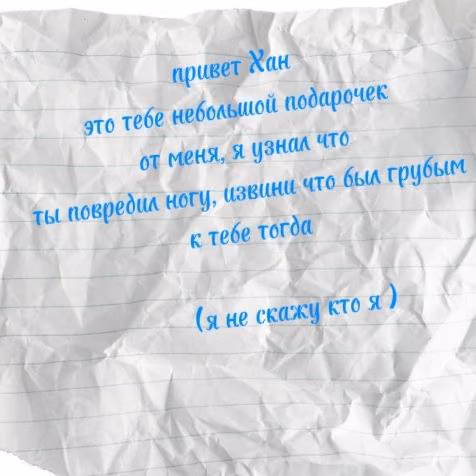 привет Хан
это тебе небольшой подарочек
от меня, я узнал что
ты повредил ногу, извини что был грубым
к тебе тогда
(я не скажу кто я )